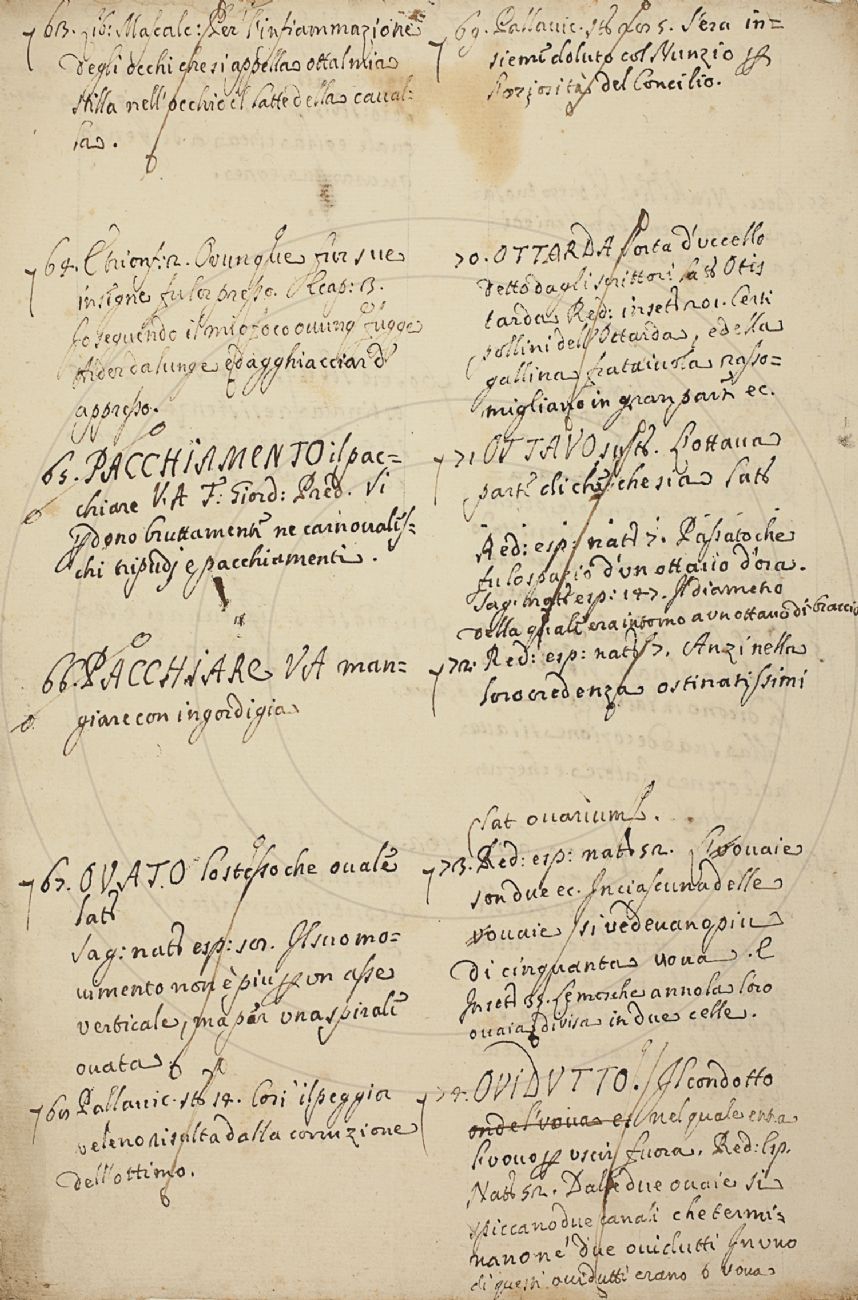 63. lib: Mascalc: Per l'infiammazione
degli occhi che si appella ottalmia
stilla nell'occhio il latte della caval-
la.
64. E trionf: 2. Ovunque fur sue
insegne fu lor presso. E cap: 3.
Io seguendo il mio foco ovunq fugge
Arder da lunge ed agghiacciar d
appresso.
65. PACCHIAMENTO il pac=
chiare V.A. F: Giord: Pred. Vi
p dono bruttamente ne carnovales-
chi tripudj e pacchiamenti.
66. PACCHIARE VA man=
giare con ingordigia
67. OVATO lo stesso che ovale
lat
Sag: nat esp: 202. Il suo mo=
vimento non è piu p un asse
verticale, ma per una spirale
ovata.
68 Pallavic. st 14. Cosi il peggior
veleno risulta dalla corruzione
dell'ottimo.
69. Pallavic. st Con 5. S'era in=
sieme doluto col Nunzio p
del Concilio.
70. OTTARDA sorta d'uccello
detto dagli scrittori lat Otis
tarda Red: inset 201. Certi
pollini dell'Ottarda, e della
gallina prataiuola rasso=
migliano in gran parte ec.
71 OTTAVO sust. L'ottava
parte di che che sia Lat
Red: esp: nat 7. Passato che
fu lo spazio d'un ottavo d'ora.
Sag: nat esp: 147. Il diametro
della quale era intorno a un ottavo di braccio
72. Red: esp: nat 57. Anzi nella
loro credenza ostinatissimi
lat ovarium.
73. Red: esp: nat 52. Le ovaie
son due ec. In ciascuna delle
vovaie si vedevano piu
di cinquanta vova. E
Inset 85. Le mosche anno la loro
ovaia divisa in due celle.
74. OVIDUTTO. Il condotto
onde l'vova es nel quale entra
l'vovo p uscir fuora. Red: Esp.
Nat 52. Dalle due ovaie si
spiccano due canali che termi=
nano ne' due ovidutti In uno
di questi ovidutti erano 6 vova